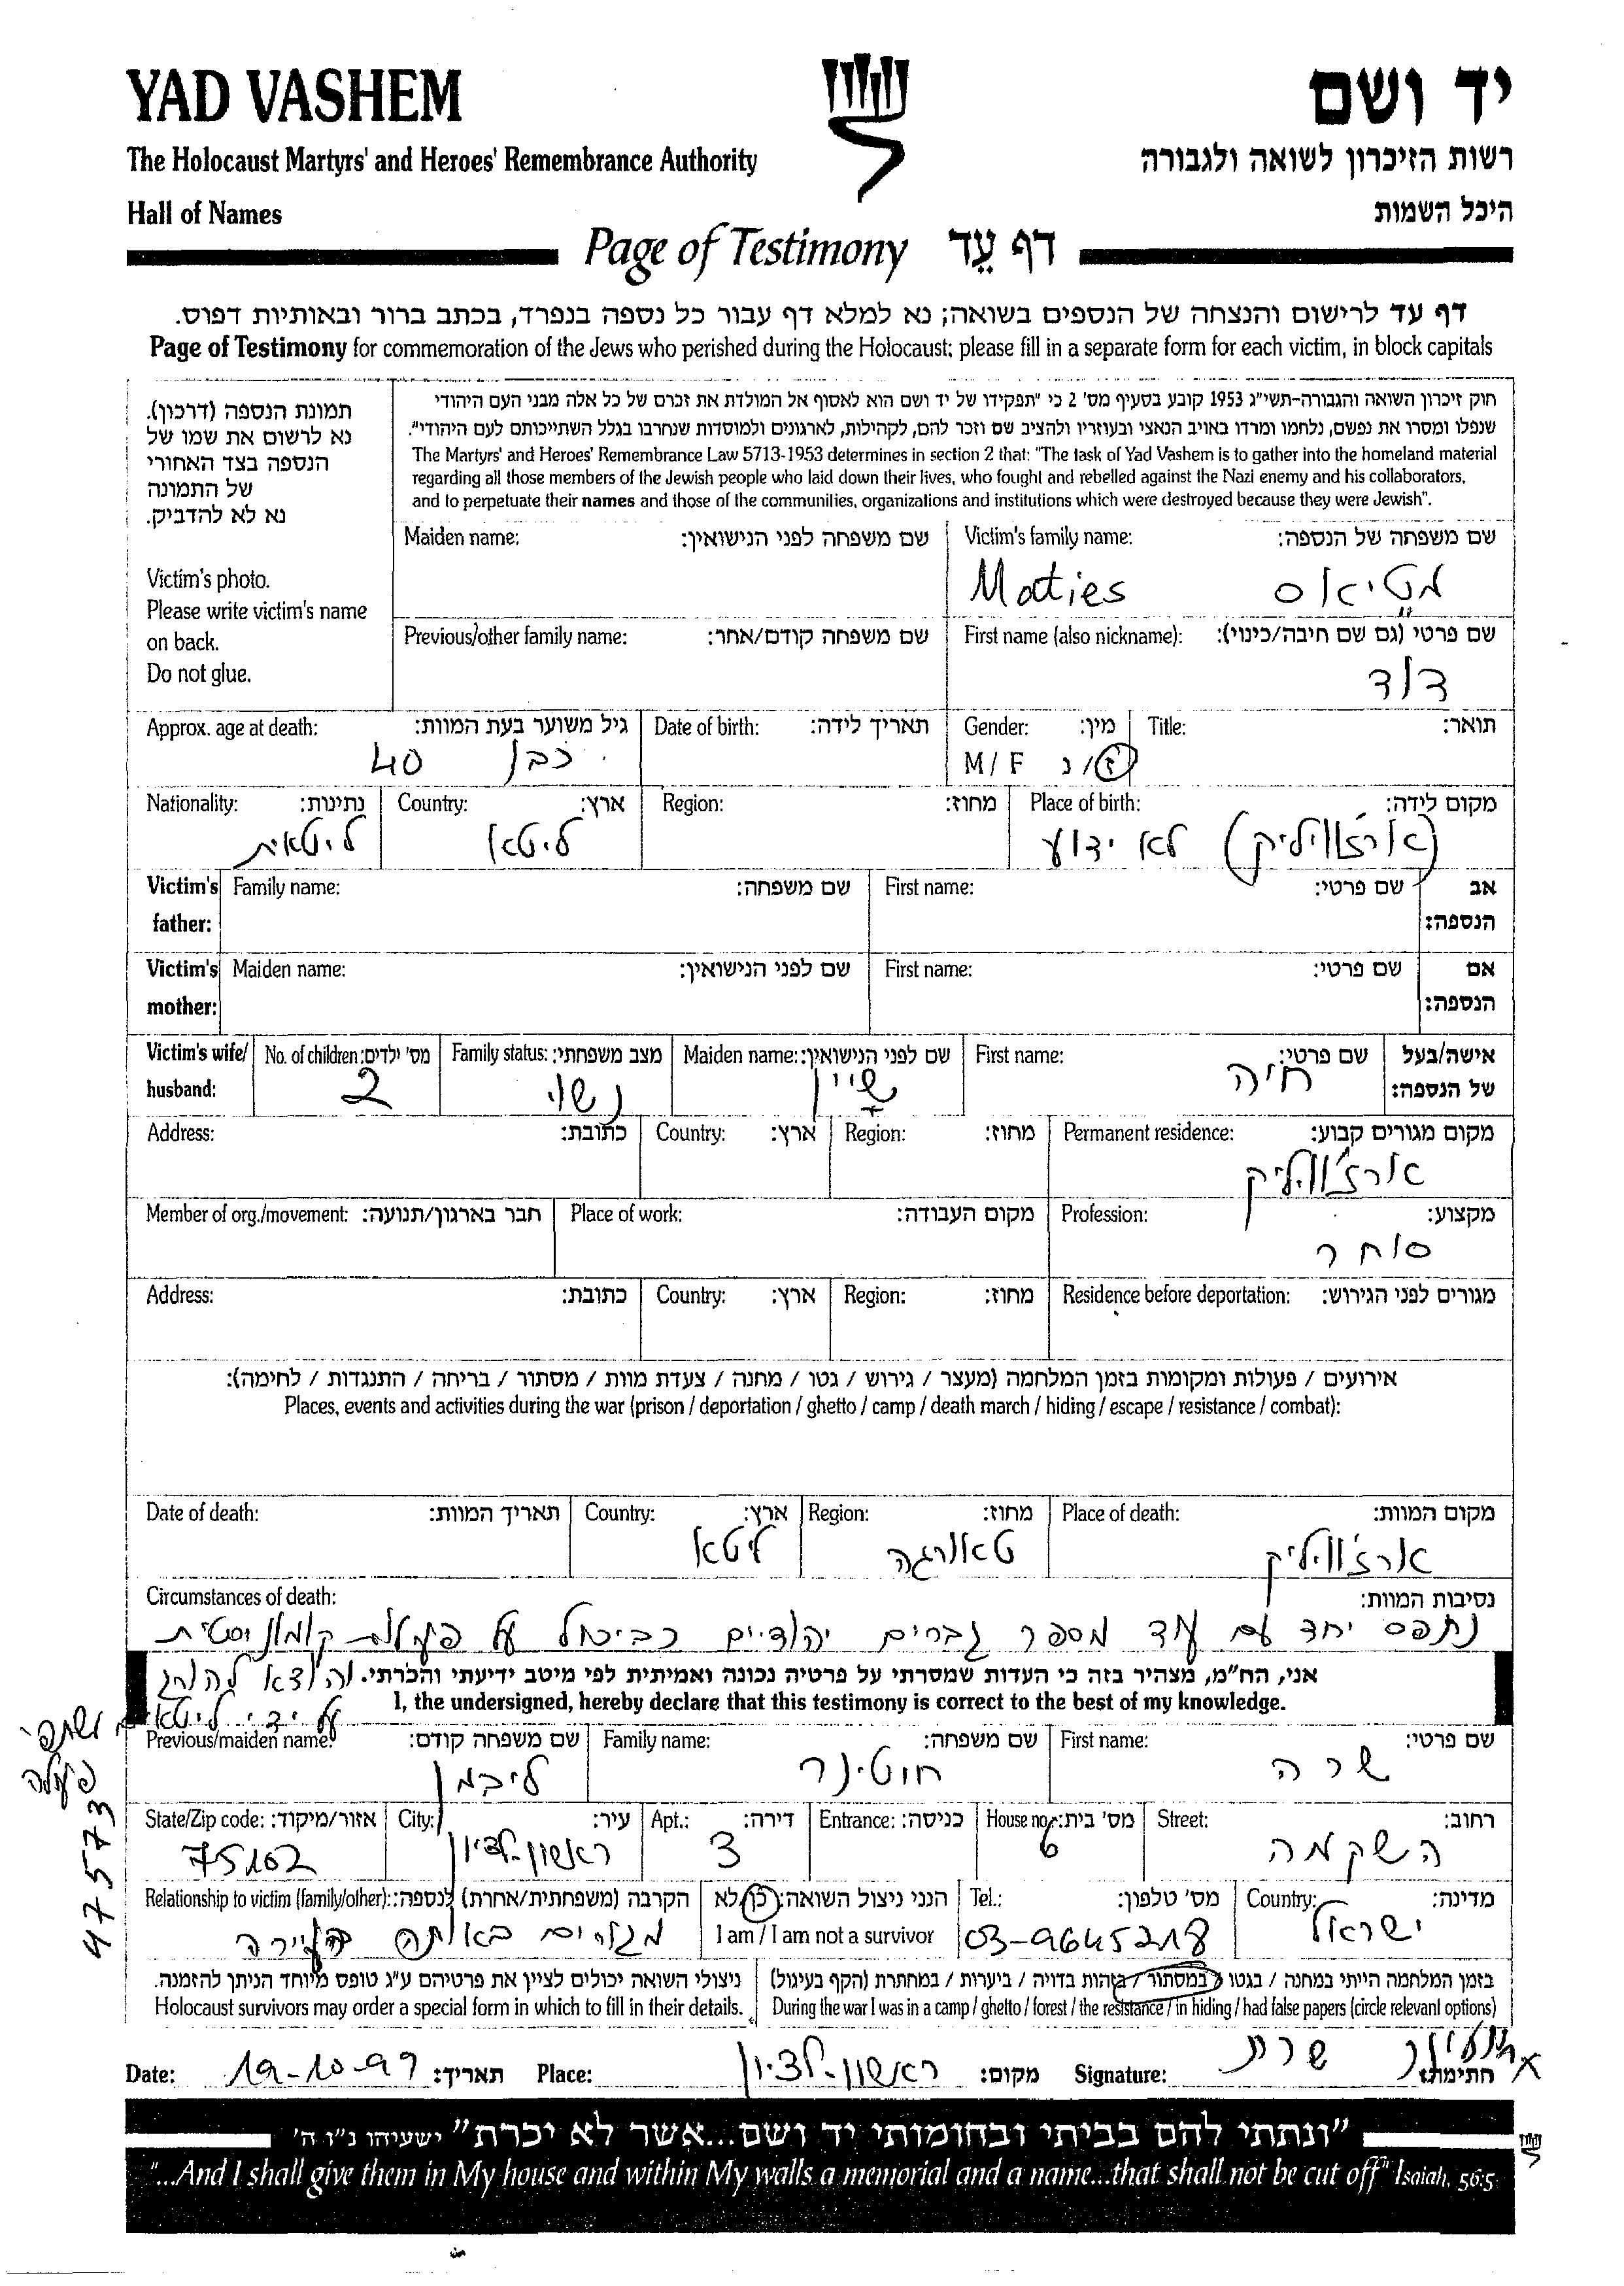 YAD VASHEM
יד ושם
The Holocaust Martyrs' and Heroes' Remembrance Authority
רשות הזיכרון לשואה ולגבורה
Hall of Names
היכל השמות
Page of Testimony דף עֵד
דף עד לרישום והנצחה של הנספים בשואה; נא למלא דף עבור כל נספה בנפרד, בכתב ברור ובאותיות דפוס.
Page of Testimony for commemoration of the Jews who perished during the Holocaust; please fill in a separate form for each victim, in block capitals
תמונת הנספה (דרכון).
נא לרשום את שמו של
הנספה בצד האחורי
של התמונה
נא לא להדביק.
Victim's photo.
Please write victim's name
on back.
Do not glue.
חוק זיכרון השואה והגבורה-תשי"ג 1953 קובע בסעיף מס' 2 כי "תפקידו של יד ושם הוא לאסוף אל המולדת את זכרם של כל אלה מבני העם היהודי
שנפלו ומסרו את נפשם, נלחמו ומרדו באויב הנאצי ובעוזריו ולהציב שם וזכר להם, לקהילות, לארגונים ולמוסדות שנחרבו בגלל השתייכותם לעם היהודי".
The Martyrs' and Heroes' Remembrance Law 5713-1953 determines in section 2 that: "The task of Yad Vashem is to gather into the homeland material
regarding all those members of the Jewish people who laid down their lives, who fought and rebelled against the Nazi enemy and his collaborators,
and to perpetuate their names and those of the communities, organizations and institutions which were destroyed because they were Jewish".
Maiden name: שם משפחה לפני הנישואין: Victim's family name: שם משפחה של הנספה:
Maties מטיאס
Previous/other family name: שם משפחה קודם/אחר: First name (also nickname): שם פרטי (גם שם חיבה/כינוי):
דוד
Approx. age at death: גיל משוער בעת המוות: Date of birth: תאריך לידה: Gender: מין: Title: תואר:
כבן 40 M / F ז/נ
Nationality: נתינות: Country: ארץ: Region: מחוז: Place of birth: מקום לידה:
ליטאית ליטא (ארז'ווליק) לא ידוע
Victim's father: Family name: שם משפחה: First name: שם פרטי: אב הנספה:
Victim's mother: Maiden name: שם לפני הנישואין: First name: שם פרטי: אם הנספה:
Victim's wife/ husband: No. of children: מס' ילדים: Family status: מצב משפחתי: Maiden name: שם לפני הנישואין: First name: שם פרטי: אישה/בעל של הנספה:
2 נשוי שיין חיה
Address: כתובת: Country: ארץ: Region: מחוז: Permanent residence: מקום מגורים קבוע:
ארז'ווליק
Member of org./movement: חבר בארגון/תנועה: Place of work: מקום העבודה: Profession: מקצוע:
סוחר
Address: כתובת: Country: ארץ: Region: מחוז: Residence before deportation: מגורים לפני הגירוש:
אירועים / פעולות ומקומות בזמן המלחמה (מעצר / גירוש / גטו / מחנה / צעדת מוות / מסתור / בריחה / התנגדות / לחימה):
Places, events and activities during the war (prison / deportation / ghetto / camp / death march / hiding / escape / resistance / combat):
Date of death: תאריך המוות: Country: ארץ: Region: מחוז: Place of death: מקום המוות:
ליטא טאורגה ארז'ווליק
Circumstances of death: נסיבות המוות:
נתפס יחד עם עוד מספר גברים יהודיים כביכול על פעולה קומוניסטית
אני, הח"מ, מצהיר בזה כי העדות שמסרתי על פרטיה נכונה ואמיתית לפי מיטב ידיעתי והכרתי. והוצא להורג
I, the undersigned, hereby declare that this testimony is correct to the best of my knowledge.
על ידי ליטאים ושתפי
פעולה
Previous/maiden name: שם משפחה קודם: Family name: שם משפחה: First name: שם פרטי:
ליבמן חוטינר שרה
State/Zip code: אזור/מיקוד: City: עיר: Apt.: דירה: Entrance: כניסה: House no.: מס' בית: Street: רחוב:
75102 ראשון-לציון 3 6 השקמה
Relationship to victim (family/other): הקרבה (משפחתית/אחרת) לנספה: הנני ניצול השואה: כן/לא Tel.: מס' טלפון: Country: מדינה:
מגורים באותה העיירה I am / I am not a survivor 03-9645218 ישראל
ניצולי השואה יכולים לציין את פרטיהם ע"ג טופס מיוחד הניתן להזמנה. בזמן המלחמה הייתי במחנה / בגטו / במסתור / בזהות בדויה / ביערות / במחתרת (הקף בעיגול)
Holocaust survivors may order a special form in which to fill in their details. During the war I was in a camp / ghetto / forest / the resistance / in hiding / had false papers (circle relevant options)
Date: 19-10-99 תאריך: Place: ראשון-לציון מקום: Signature: שרה חתימה:
"ונתתי להם בביתי ובחומותי יד ושם...אשר לא יכרת" ישעיהו נ"ו ה'
"...And I shall give them in My house and within My walls a memorial and a name...that shall not be cut off" Isaiah, 56:5
47573